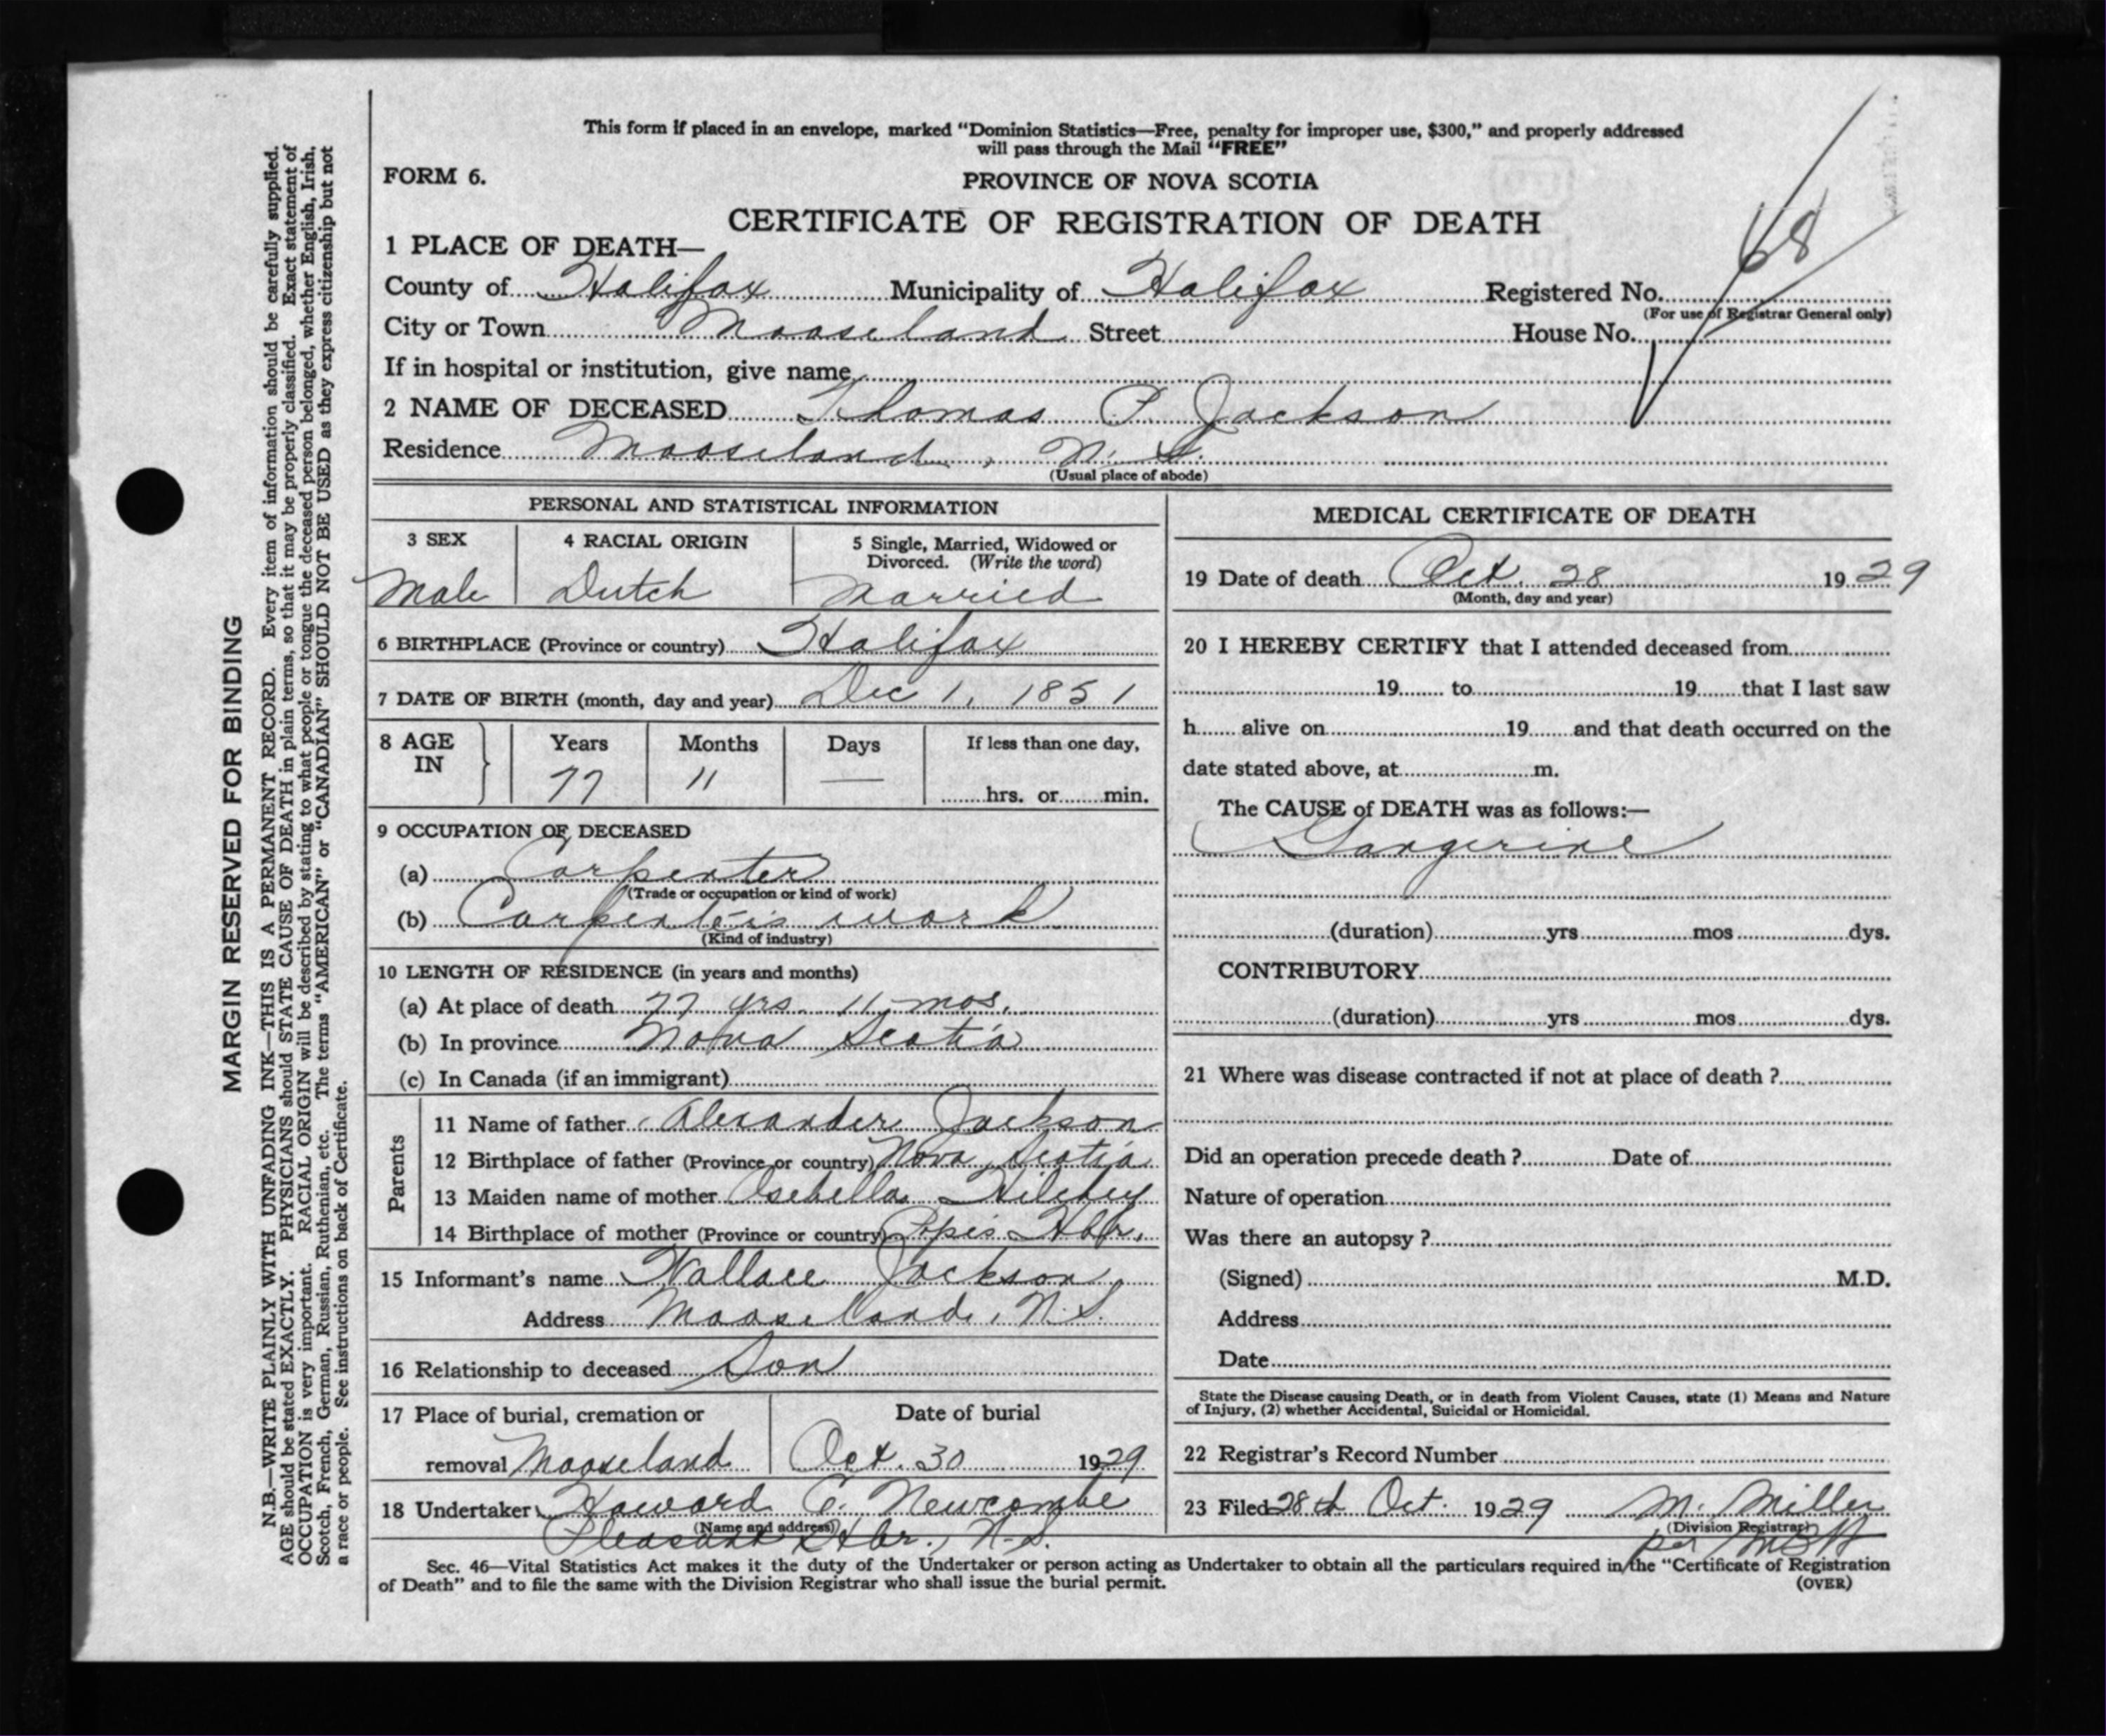 This form if placed in an envelope, marked “Dominion Statistics—Free, penalty for improper use, $300,” and properly addressed
will pass through the Mail “FREE”
FORM 6.
PROVINCE OF NOVA SCOTIA
CERTIFICATE OF REGISTRATION OF DEATH
68
1 PLACE OF DEATH—
County of Halifax Municipality of Halifax Registered No.
(For use of Registrar General only)
City or Town Mooseland Street House No.
If in hospital or institution, give name
2 NAME OF DECEASED Thomas P. Jackson
Residence Mooseland, N. S.
(Usual place of abode)
PERSONAL AND STATISTICAL INFORMATION
3 SEX 4 RACIAL ORIGIN 5 Single, Married, Widowed or
Divorced. (Write the word)
Male Dutch Married
6 BIRTHPLACE (Province or country) Halifax
7 DATE OF BIRTH (month, day and year) Dec 1, 1851
8 AGE IN Years Months Days If less than one day,
77 11 — hrs. or min.
9 OCCUPATION OF DECEASED
(a) Carpenter
(Trade or occupation or kind of work)
(b) Carpenter's work
(Kind of industry)
10 LENGTH OF RESIDENCE (in years and months)
(a) At place of death 77 yrs. 11 mos.
(b) In province Nova Scotia
(c) In Canada (if an immigrant)
Parents
11 Name of father Alexander Jackson
12 Birthplace of father (Province or country) Nova Scotia
13 Maiden name of mother Hilchey
14 Birthplace of mother (Province or country) Hbr.
15 Informant's name Wallace Jackson,
Address Mooseland, N. S.
16 Relationship to deceased Son
17 Place of burial, cremation or Date of burial
removal Mooseland Oct. 30 1929
18 Undertaker Howard E. Newcombe
(Name and address)
Pleasant Hbr., N. S.
MEDICAL CERTIFICATE OF DEATH
19 Date of death Oct. 28 1929
(Month, day and year)
20 I HEREBY CERTIFY that I attended deceased from
19 to 19 that I last saw
h alive on 19 and that death occurred on the
date stated above, at m.
The CAUSE of DEATH was as follows:—
Gangerine
(duration) yrs mos dys.
CONTRIBUTORY
(duration) yrs mos dys.
21 Where was disease contracted if not at place of death ?
Did an operation precede death ? Date of
Nature of operation
Was there an autopsy ?
(Signed) M.D.
Address
Date
State the Disease causing Death, or in death from Violent Causes, state (1) Means and Nature
of Injury, (2) whether Accidental, Suicidal or Homicidal.
22 Registrar's Record Number
23 Filed 28th Oct. 1929 M. Miller
(Division Registrar)
per
Sec. 46—Vital Statistics Act makes it the duty of the Undertaker or person acting as Undertaker to obtain all the particulars required in the “Certificate of Registration
of Death” and to file the same with the Division Registrar who shall issue the burial permit.
(OVER)
MARGIN RESERVED FOR BINDING
N.B.—WRITE PLAINLY WITH UNFADING INK—THIS IS A PERMANENT RECORD. Every item of information should be carefully supplied.
AGE should be stated EXACTLY. PHYSICIANS should STATE CAUSE OF DEATH in plain terms, so that it may be properly classified. Exact statement of
OCCUPATION is very important. RACIAL ORIGIN will be described by stating to what people or tongue the deceased person belonged, whether English, Irish,
Scotch, French, German, Russian, Ruthenian, etc. The terms “AMERICAN” or “CANADIAN” SHOULD NOT BE USED as they express citizenship but not
a race or people. See instructions on back of Certificate.